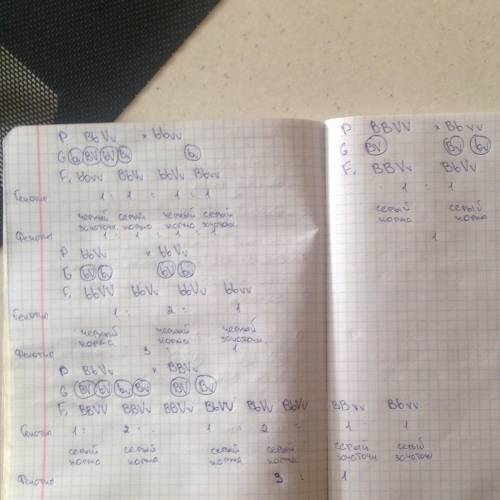 P BbVv × bbvv
G bv BV bV Bv bv
F₁ bbvv BbVv bbVv Bbvv
Генотип 1 : 1 : 1 : 1
черный серый черный серый
зачаточн. норма норма зачаточн.
Фенотип 1 : 1 : 1 : 1
P bbVv × bbVv
G bV bv bV bv
F₁ bbVV bbVv bbVv bbvv
Генотип 1 : 2 : 1
черный черный черный
норма норма зачаточн.
Фенотип 3 : 1
P BbVv × BBVv
G BV bV Bv bv BV Bv
F₁ BBVV BBVv BBVv BbVV BbVv BbVv BBvv Bbvv
Генотип 1 : 2 : 1 2 : 1 1
серый серый серый серый серый серый
норма норма норма норма зачаточн зачаточн
Фенотип 3 : 1
P BBVV × Bbvv
G BV Bv bv
F₁ BBVv BbVv
1 : 1
серый серый
норма норма
1